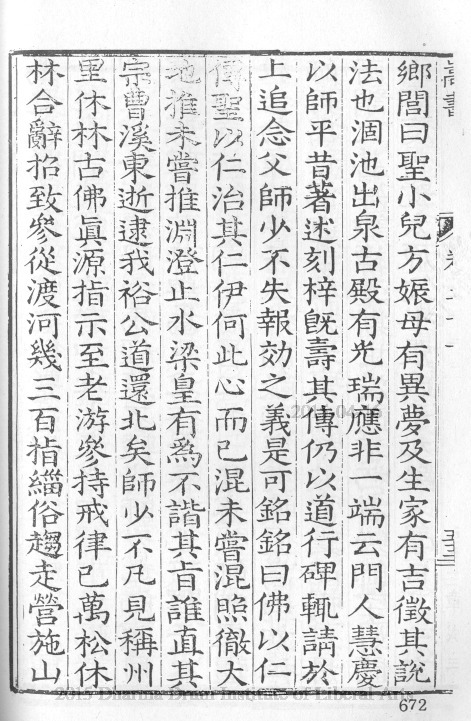 鄉閭曰聖小兒方娠母有異夢及生家有吉徵其說
法也涸池出泉古殿有光瑞應非一端云門人慧慶
以師平昔著述刻梓旣壽其傳仍以道行碑輒請於
上追念父師少不失報効之義是可銘銘曰佛以仁
傳聖以仁治其仁伊何此心而已混未嘗混炤徹大
地推未嘗推淵澄止水梁皇有爲不諧其旨誰直其
宗曹溪東逝逮我裕公道還北矣師少不凡見稱州
里休林古佛眞源指示至老游參持戒律已萬松休
林合辭招致參從渡河幾三百指緇俗趨走營施山
672